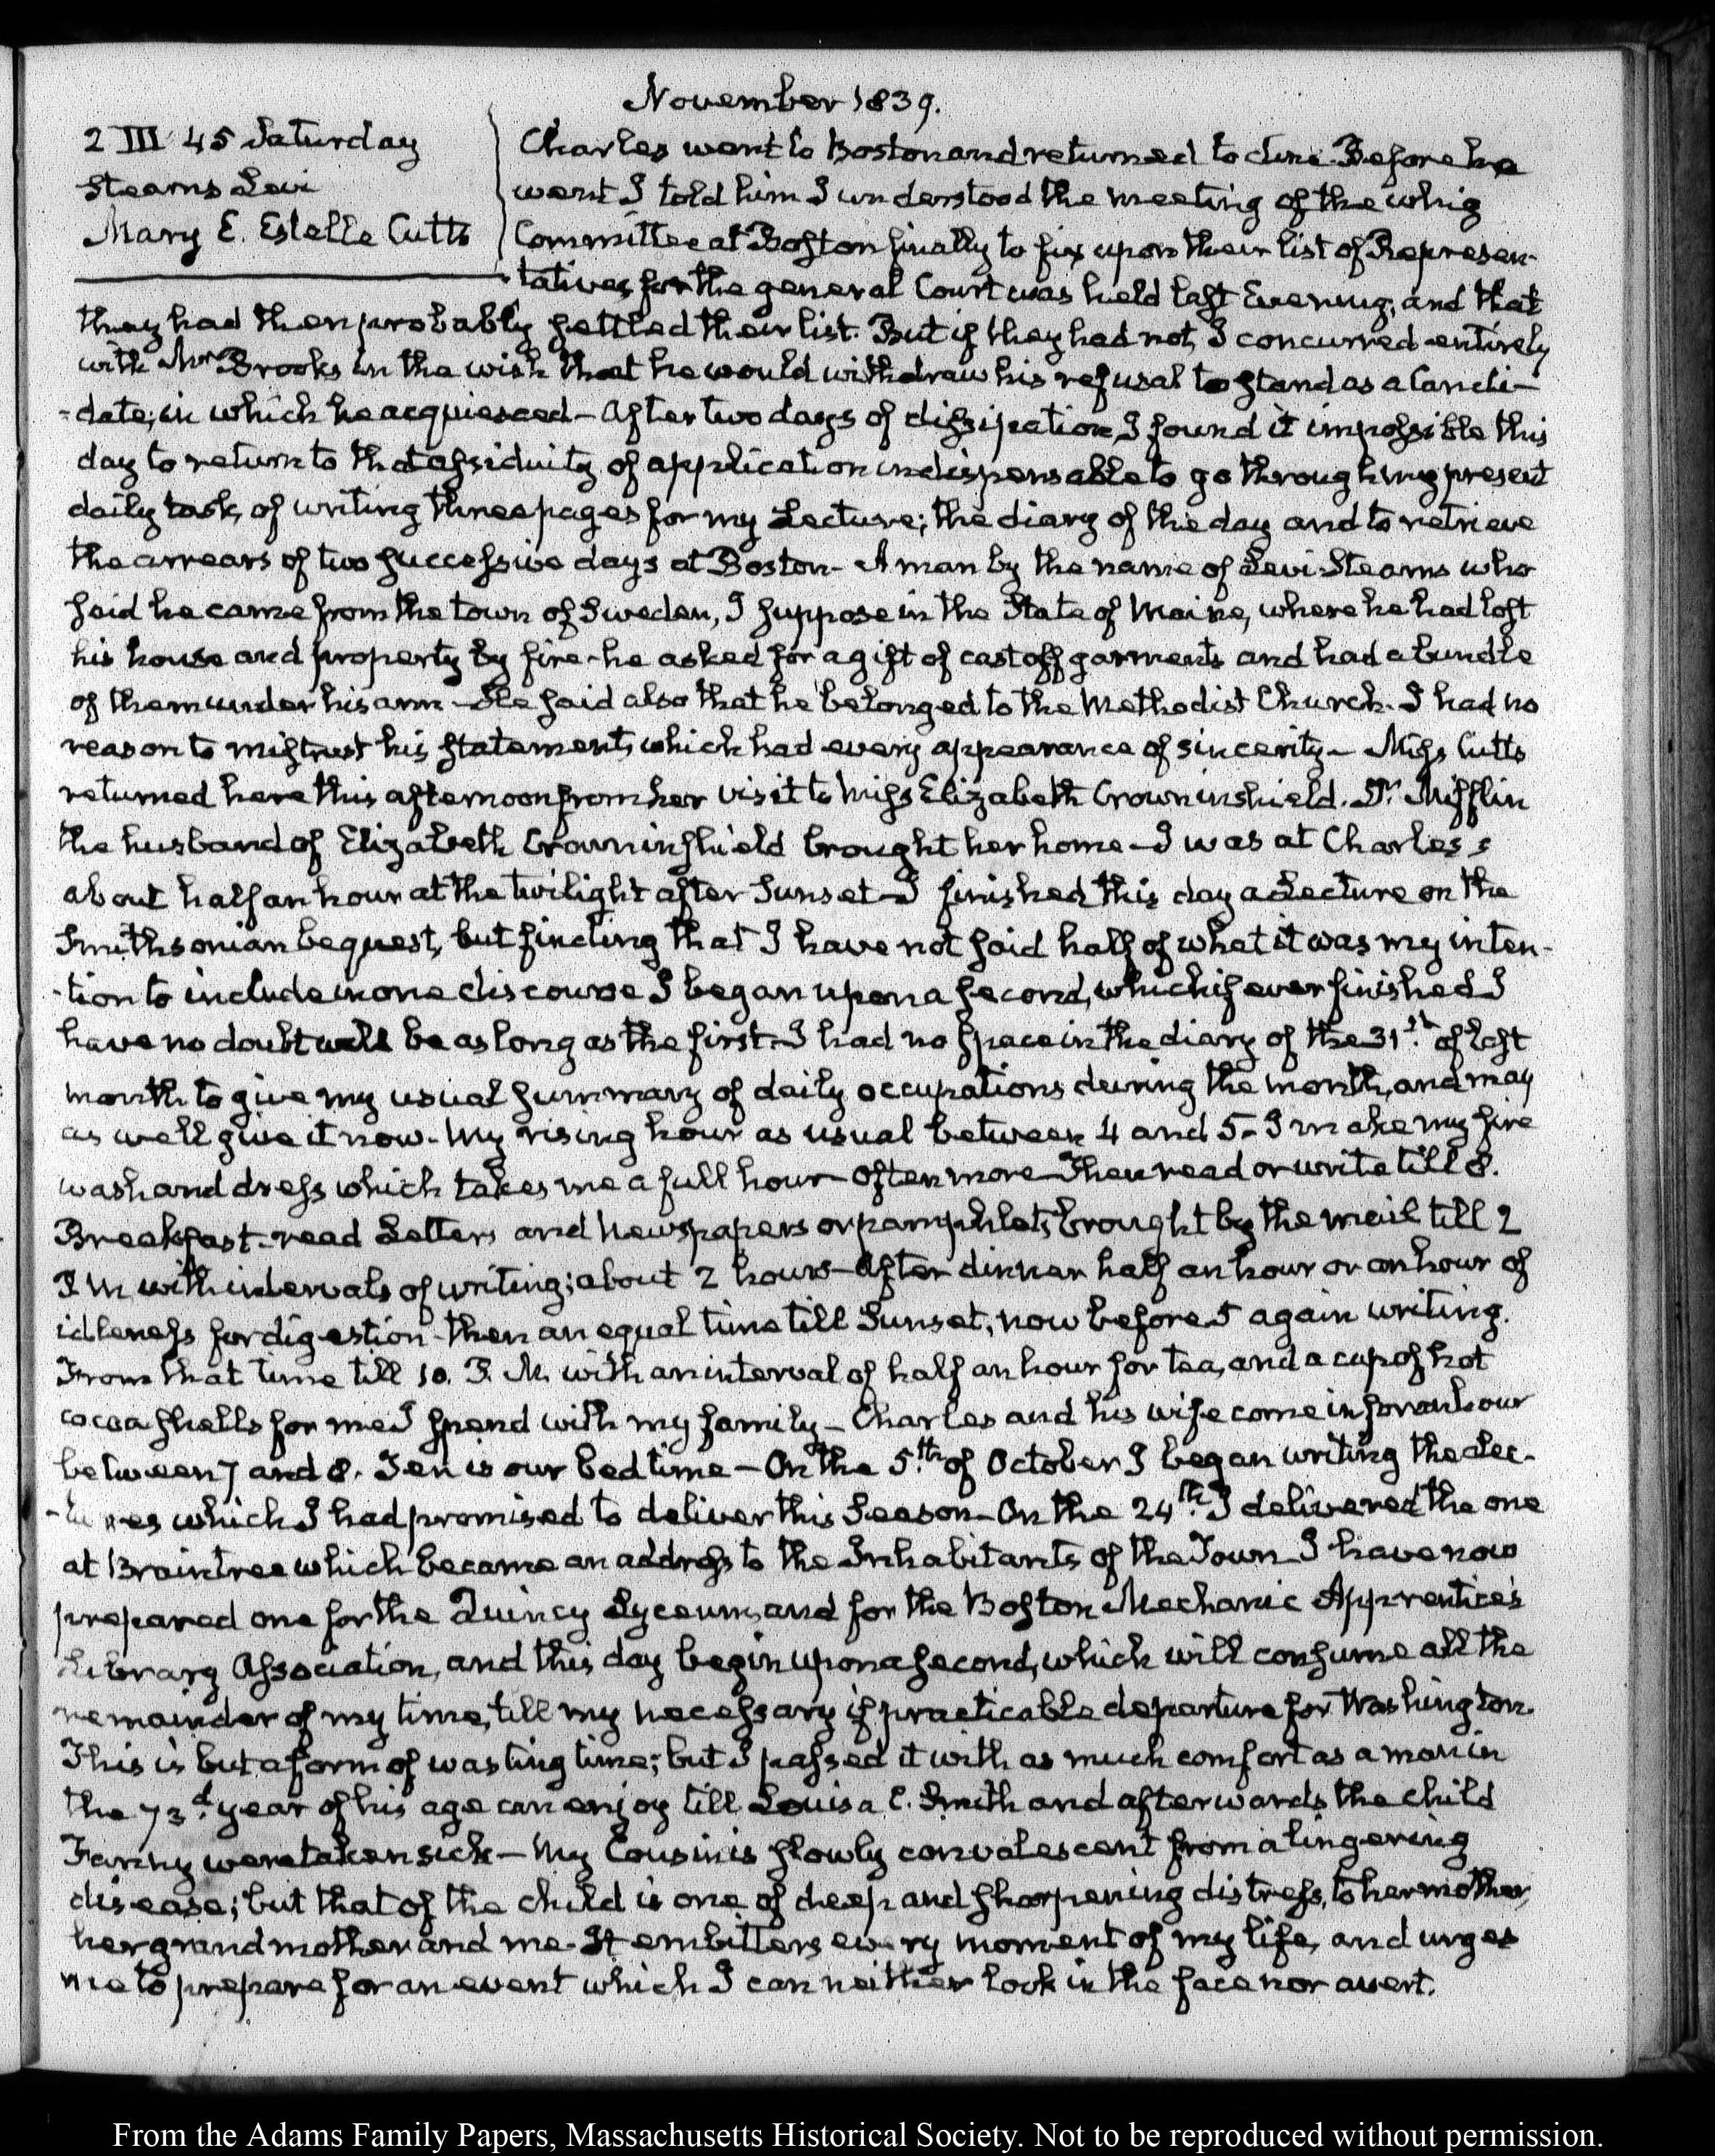 November 1839.
2 III 45 Saturday
Stearns Levi
Mary E. Estelle Cutts
Charles went to Boston and returned to dine. Before he
went I told him I understood the meeting of the whig
Committee at Boston finally to fix upon their list of Represen-
tatives for the general Court was held last Evening, and that
they had then probably settled their list. But if they had not, I concurred entirely
with Mr Brooks in the wish that he would withdraw his refusal to stand as a Candi-
-date; in which he acquiesced — After two days of dissipation I found it impossible this
day to return to that assiduity of application indispensable to go through my present
daily task, of writing three pages for my Lecture; the diary of the day and to retrieve
the arrears of two successive days at Boston — A man by the name of Levi Stearns who
said he came from the town of Sweden, I suppose in the State of Maine, where he had lost
his house and property by fire — he asked for a gift of cast off garments and had a bundle
of them under his arm — He said also that he belonged to the Methodist Church. I had no
reason to mistrust his statements which had every appearance of sincerity — Miss Cutts
returned here this afternoon from her visit to Miss Elizabeth Crowninshield. Dr. Mifflin
the husband of Elizabeth Crowninshield brought her home — I was at Charles's
about half an hour at the twilight after Sunset — I finished this day a Lecture on the
Smithsonian bequest, but finding that I have not said half of what it was my inten-
-tion to include in one discourse I began upon a second, which if ever finished I
have no doubt will be as long as the first. I had no space in the diary of the 31st. of last
month to give my usual summary of daily occupations during the month, and may
as well give it now. My rising hour as usual between 4 and 5 — I make my fire
wash and dress which takes me a full hour — often more — Then read or write till 8.
Breakfast — read Letters and Newspapers or pamphlets brought by the mail till 2
P. M. with intervals of writing; about 2 hours — After dinner half an hour or an hour of
idleness for digestion — then an equal time till Sunset, now before 5 again writing.
From that time till 10. P. M. with an interval of half an hour for tea, and a cup of hot
cocoa shells for me I spend with my family — Charles and his wife come in for an hour
between 7 and 8. Ten is our bed time — On the 5.th of October I began writing the Lec-
-tures which I had promised to deliver this Season — On the 24th. I delivered the one
at Braintree which became an address to the Inhabitants of the Town — I have now
prepared one for the Quincy Lyceum, and for the Boston Mechanic Apprentice's
Library Association, and this day begin upon a second, which will consume all the
remainder of my time, till my necessary if practicable departure for Washington.
This is but a form of wasting time; but I passed it with as much comfort as a man in
the 73.d year of his age can enjoy till Louisa C. Smith and afterwards the child
Fanny were taken sick — My Cousin is slowly convalescent from a lingering
disease; but that of the child is one of deep and sharpening distress, to her mother,
her grandmother and me. It embitters every moment of my life, and urges
me to prepare for an event which I can neither look in the face nor avert.
From the Adams Family Papers, Massachusetts Historical Society. Not to be reproduced without permission.